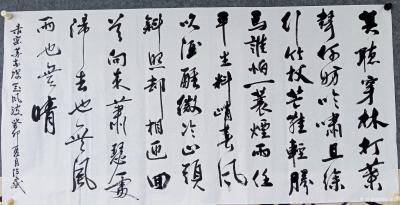 莫聽穿林打葉
聲何妨吟嘯且徐
行竹杖芒鞋輕勝
馬誰怕一蓑煙雨任
平生料峭春風
吹酒醒微冷山頭
斜照却相迎回
首向來蕭瑟處
歸去也無風
雨也無晴
宋苏东坡定风波癸卯夏月